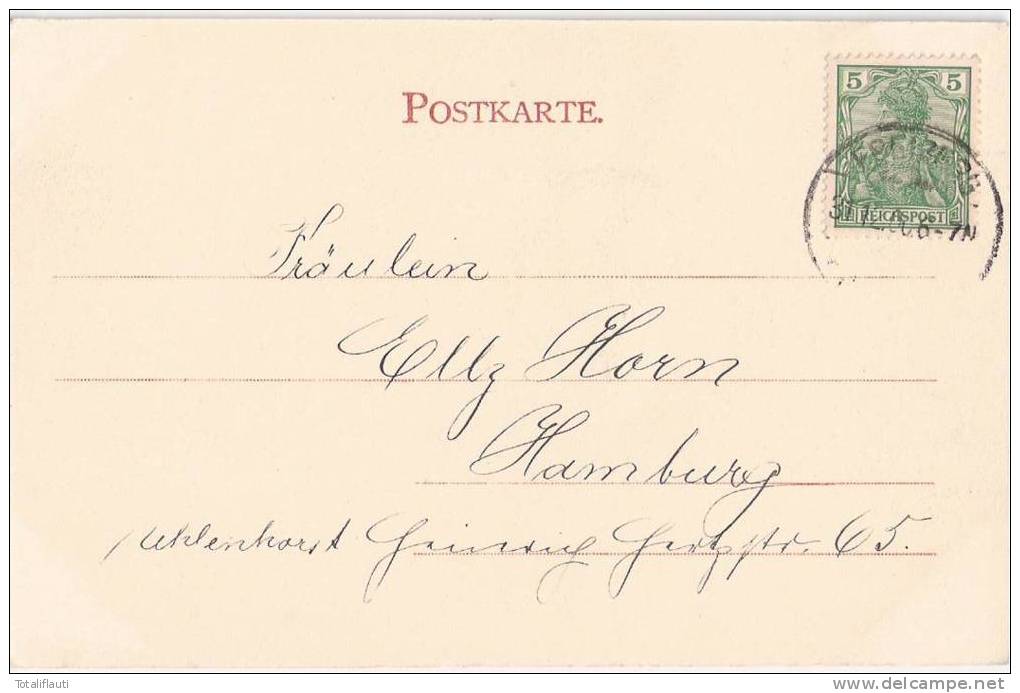 POSTKARTE.
5 5
REICHSPOST
6-7N
Fräulein
Elly Horn
Hamburg
Uhlenhorst Heinrich Hertzstr. 65.
Totaliflauti
www.delcampe.net